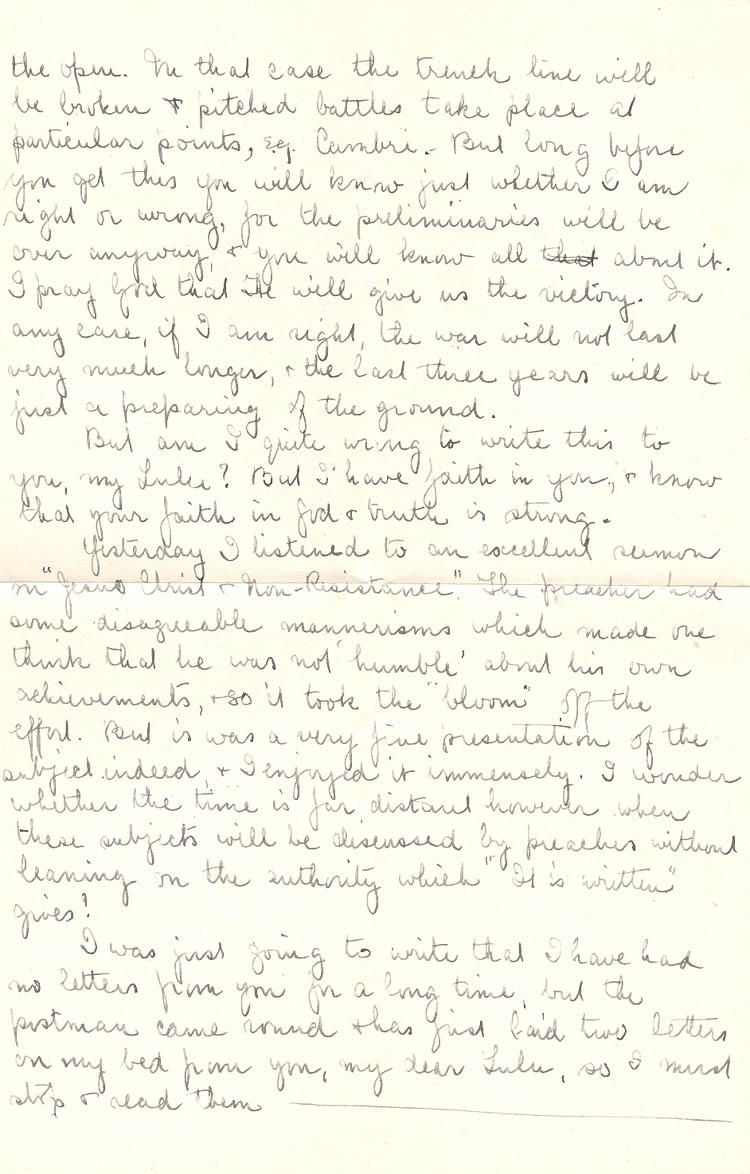 the open. In that case the trench line will
be broken & pitched battles take place at
particular points, e.g. Cambri. - But long before
you get this you will know just whether I am
right or wrong, for the preliminaries will be
over anyway, & you will know all that about it.
I pray God that He will give us the victory. In
any case, if I am right, the war will not last
very much longer, & the last three years will be
just a preparing of the ground.
But am I quite wrong to write this to
you, my Lulu? But I have faith in you, & know
that your faith in God & truth is strong.
Yesterday I listened to an excellent sermon
on "Jesus Christ & Non-Resistance". The preacher had
some disagreeable mannerisms which made one
think that he was not 'humble' about his own
achievements, & so it took the "bloom" off the
effort. But is was a very fine presentation of the
subject indeed, & I enjoyed it immensely. I wonder
whether the time is far distant however when
these subjects will be discussed by preachers without
leaning on the authority which "It is written"
gives!
I was just going to write that I have had
no letters from you for a long time, but the
postman came round & has just laid two letters
on my bed from you, my dear Lulu, so I must
stop & read them